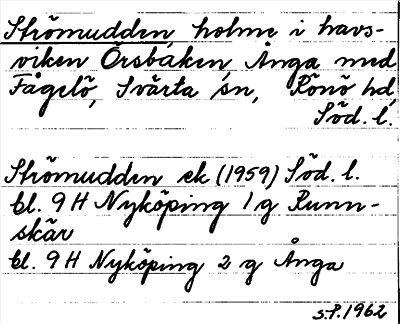 Strömudden, holme i havs-
viken Örsbaken, Ånga med
Fågelö, Svärta sn, Rönö hd,
Söd. l.
Strömudden ek (1959) Söd. l.
bl. 9 H Nyköping 1 g Runn-
skär
bl. 9 H Nyköping 2 g Ånga
S.P. 1962